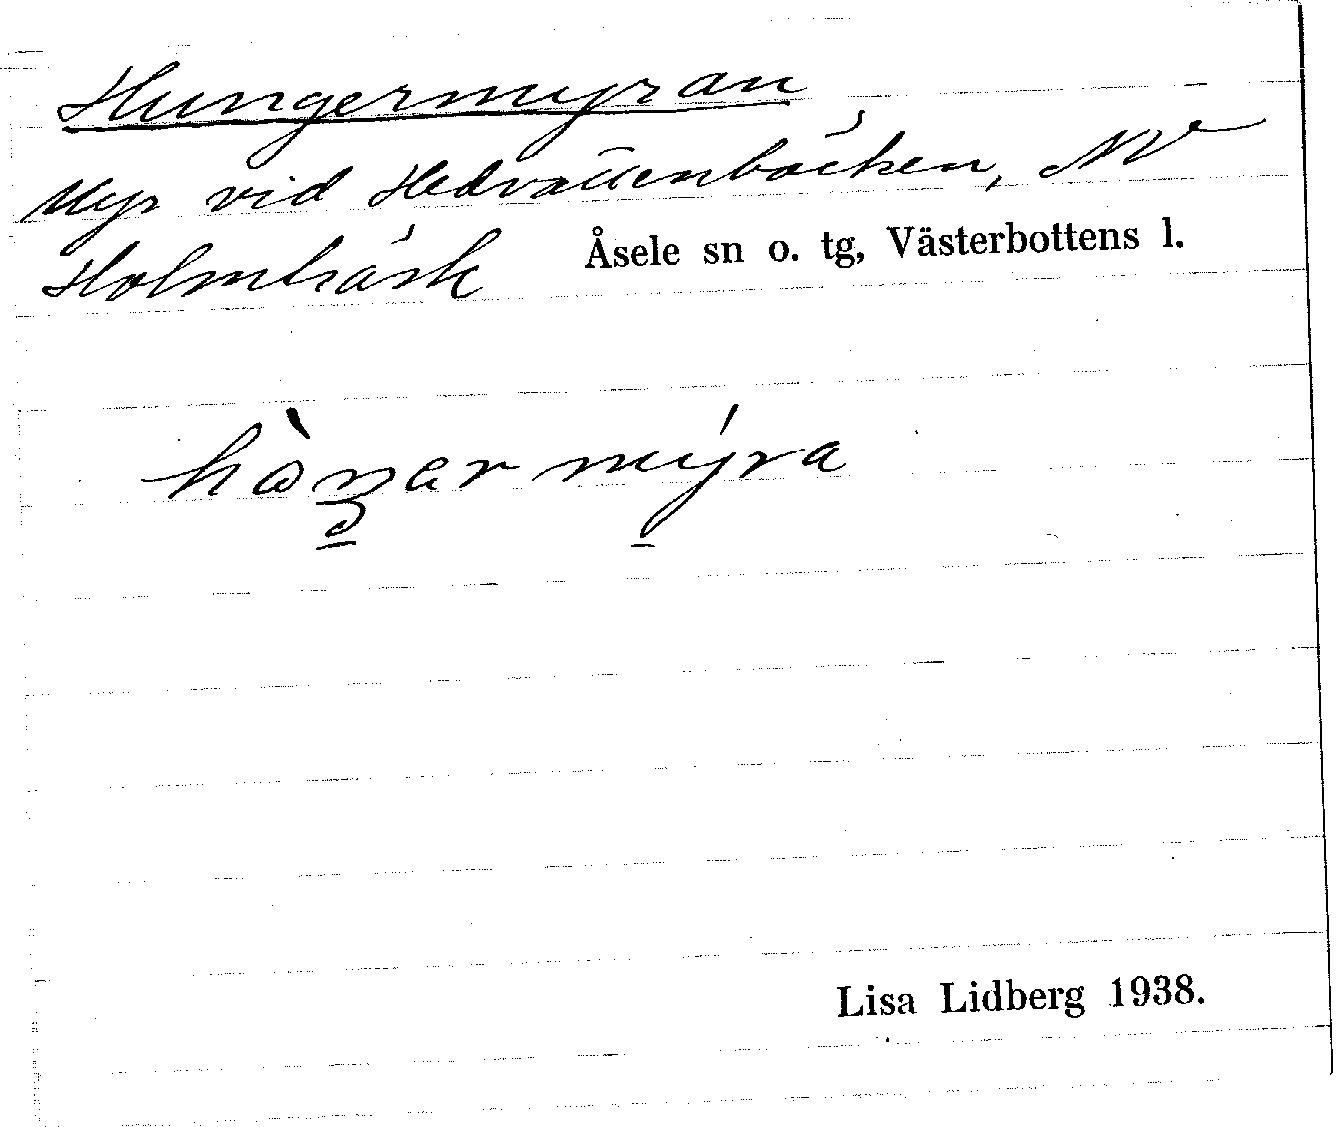 Hungermyran
Myr vid Hedvattenbäcken, NV
Holmträsk Åsele sn o. tg, Västerbottens l.
hàŋer mýra
Lisa Lidberg 1938.